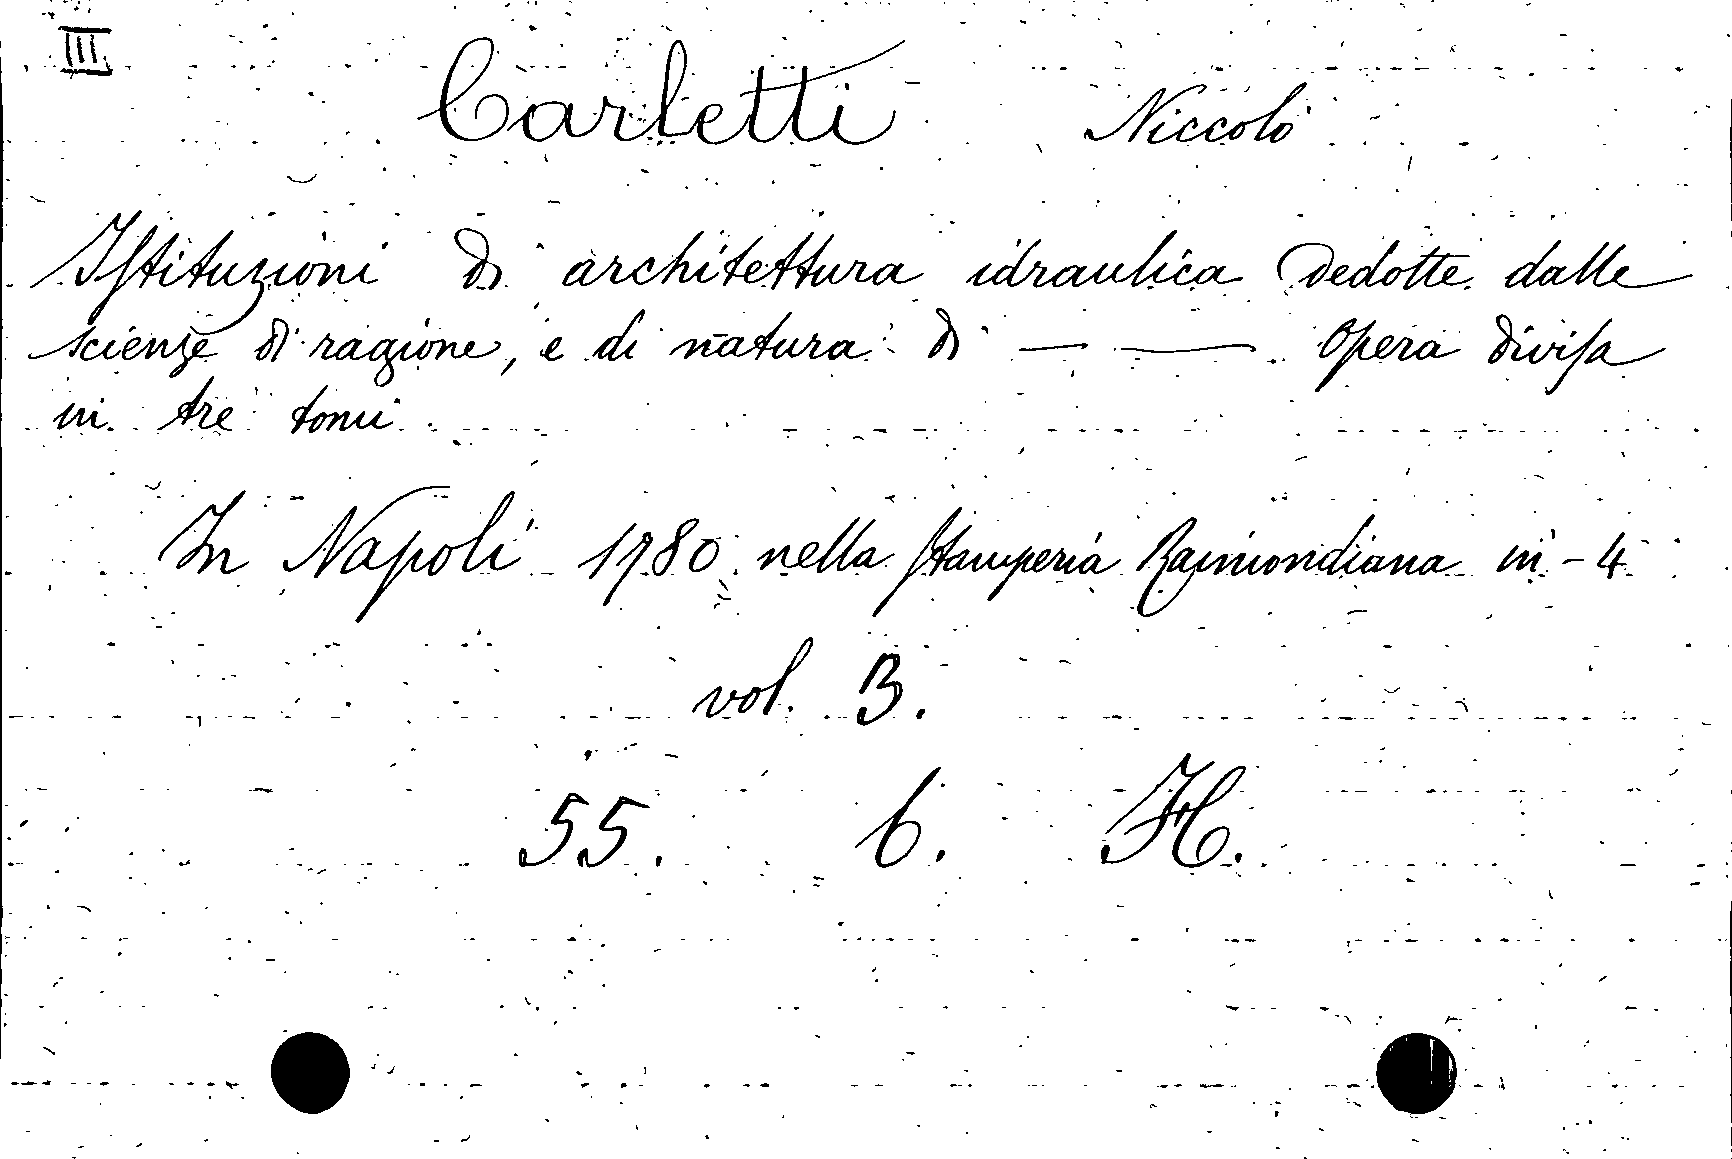 III
Carletti Niccolò
Iſtituzioni di architettura idraulica dedotte dalle
scienze di ragione, e di natura di — — Opera diviſa
in tre tomi
In Napoli 1780 nella ſtamperia Raimondiana in-4
vol. 3.
55. 6. H.